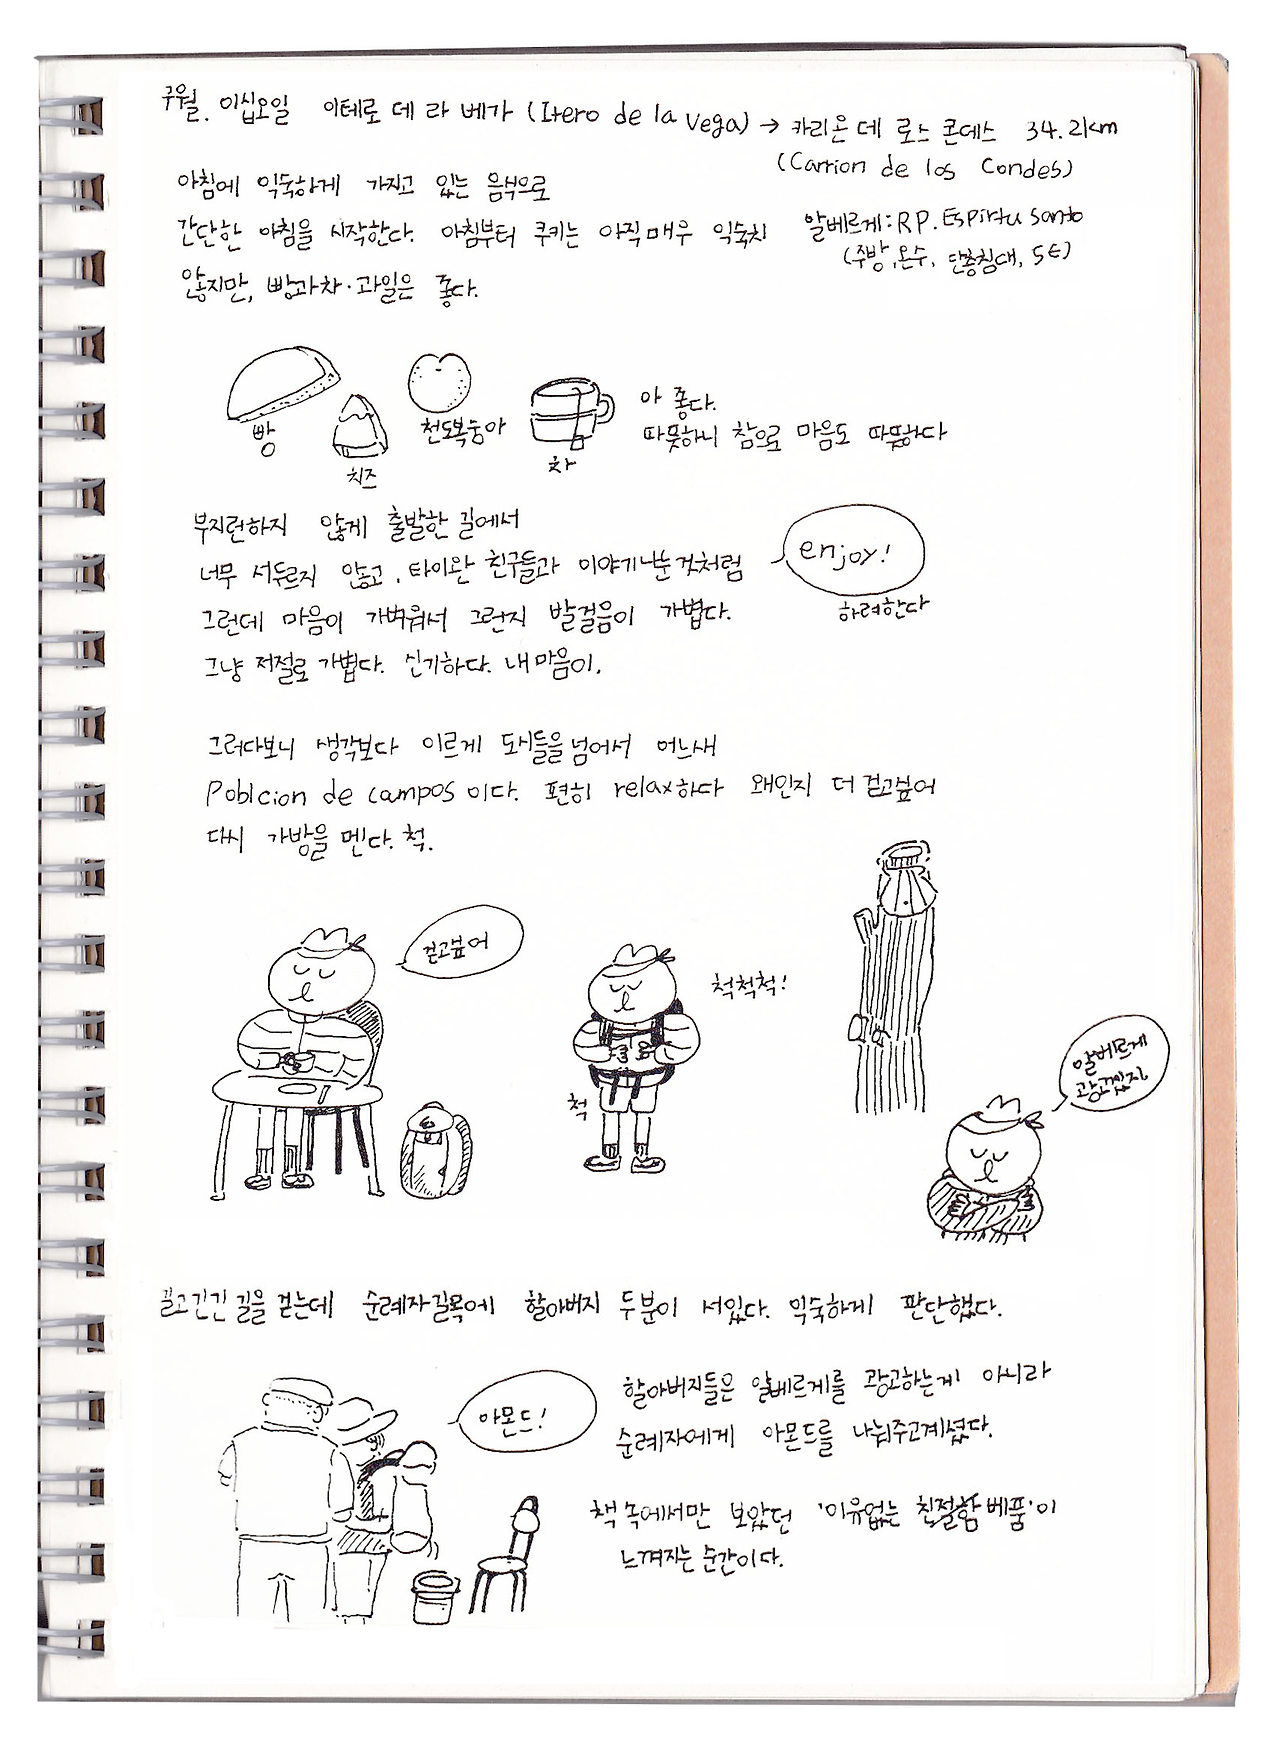 구월. 이십오일 이테로 데 라 베가 (Itero de la Vega) → 카리온 데 로스 콘데스 34.2km
(Carrion de los Condes)
아침에 익숙하게 가지고 있는 음식으로
간단한 아침을 시작한다. 아침부터 쿠키는 아직 매우 익숙치
않지만, 빵과 차·과일은 좋다.
알베르게: R.P. Espirtu santo
(주방, 온수, 단층침대, 5€)
빵
치즈
천도복숭아
차
아 좋다.
따뜻하니 참으로 마음도 따뜻하다
부지런하지 않게 출발한 길에서
너무 서두르지 않고, 타이완 친구들과 이야기나눈 것처럼
enjoy!
하려한다
그런데 마음이 가벼워서 그런지 발걸음이 가볍다.
그냥 저절로 가볍다. 신기하다. 내 마음이.
그러다보니 생각보다 이르게 도시들을 넘어서 어느새
Poblcion de campos 이다. 편히 relax하다 왜인지 더 걷고싶어
다시 가방을 멘다. 척.
걷고싶어
척척척!
척
알베르게
광고겠지
길고 긴긴 길을 걷는데 순례자길목에 할아버지 두분이 서있다. 익숙하게 판단했다.
아몬드!
할아버지들은 알베르게를 광고하는게 아니라
순례자에게 아몬드를 나눠주고계셨다.
책 속에서만 보았던 '이유없는 친절함 베품'이
느껴지는 순간이다.